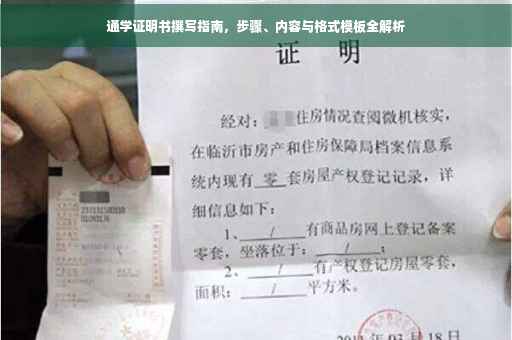 通学证明书撰写指南，步骤、内容与格式模板全解析
证 明
经对：住房情况查阅微机核实，
在临沂市房产和住房保障局档案信息系
统内现有 零 套房屋产权登记记录，详
细信息如下：
1、 / 有商品房网上登记备案
零套，坐落位于： / ；
2、 / 有产权登记房屋零套，
面积： / 平方米。
03月18日